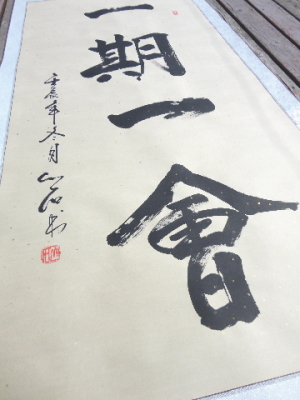 一期一會
壬辰年冬月